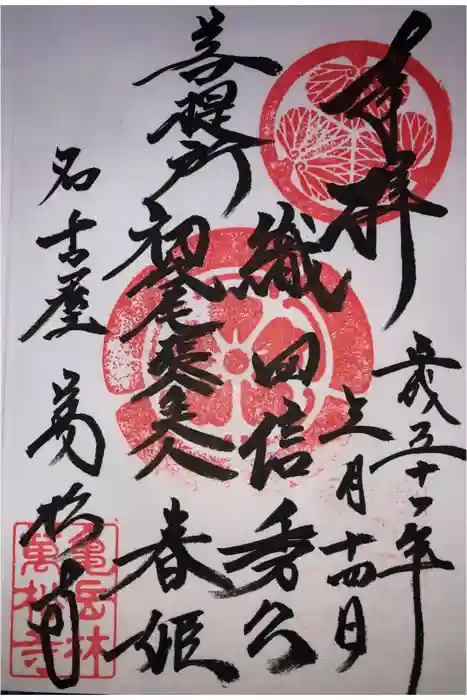 奉拝
平成三十一年
三月十四日
織田信秀公
菩提所
初尾張美人
春姫
名古屋
萬松寺
亀岳林
萬松寺